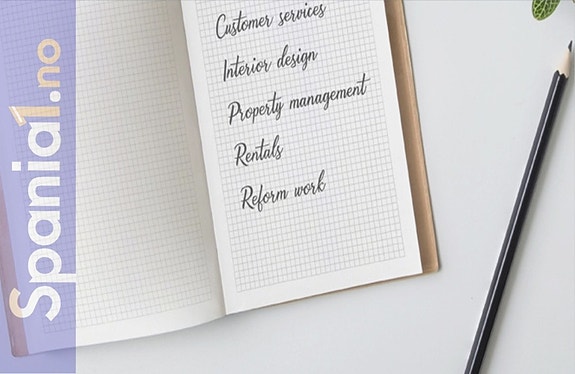 Spania1.no
Customer services
Interior design
Property management
Rentals
Reform work